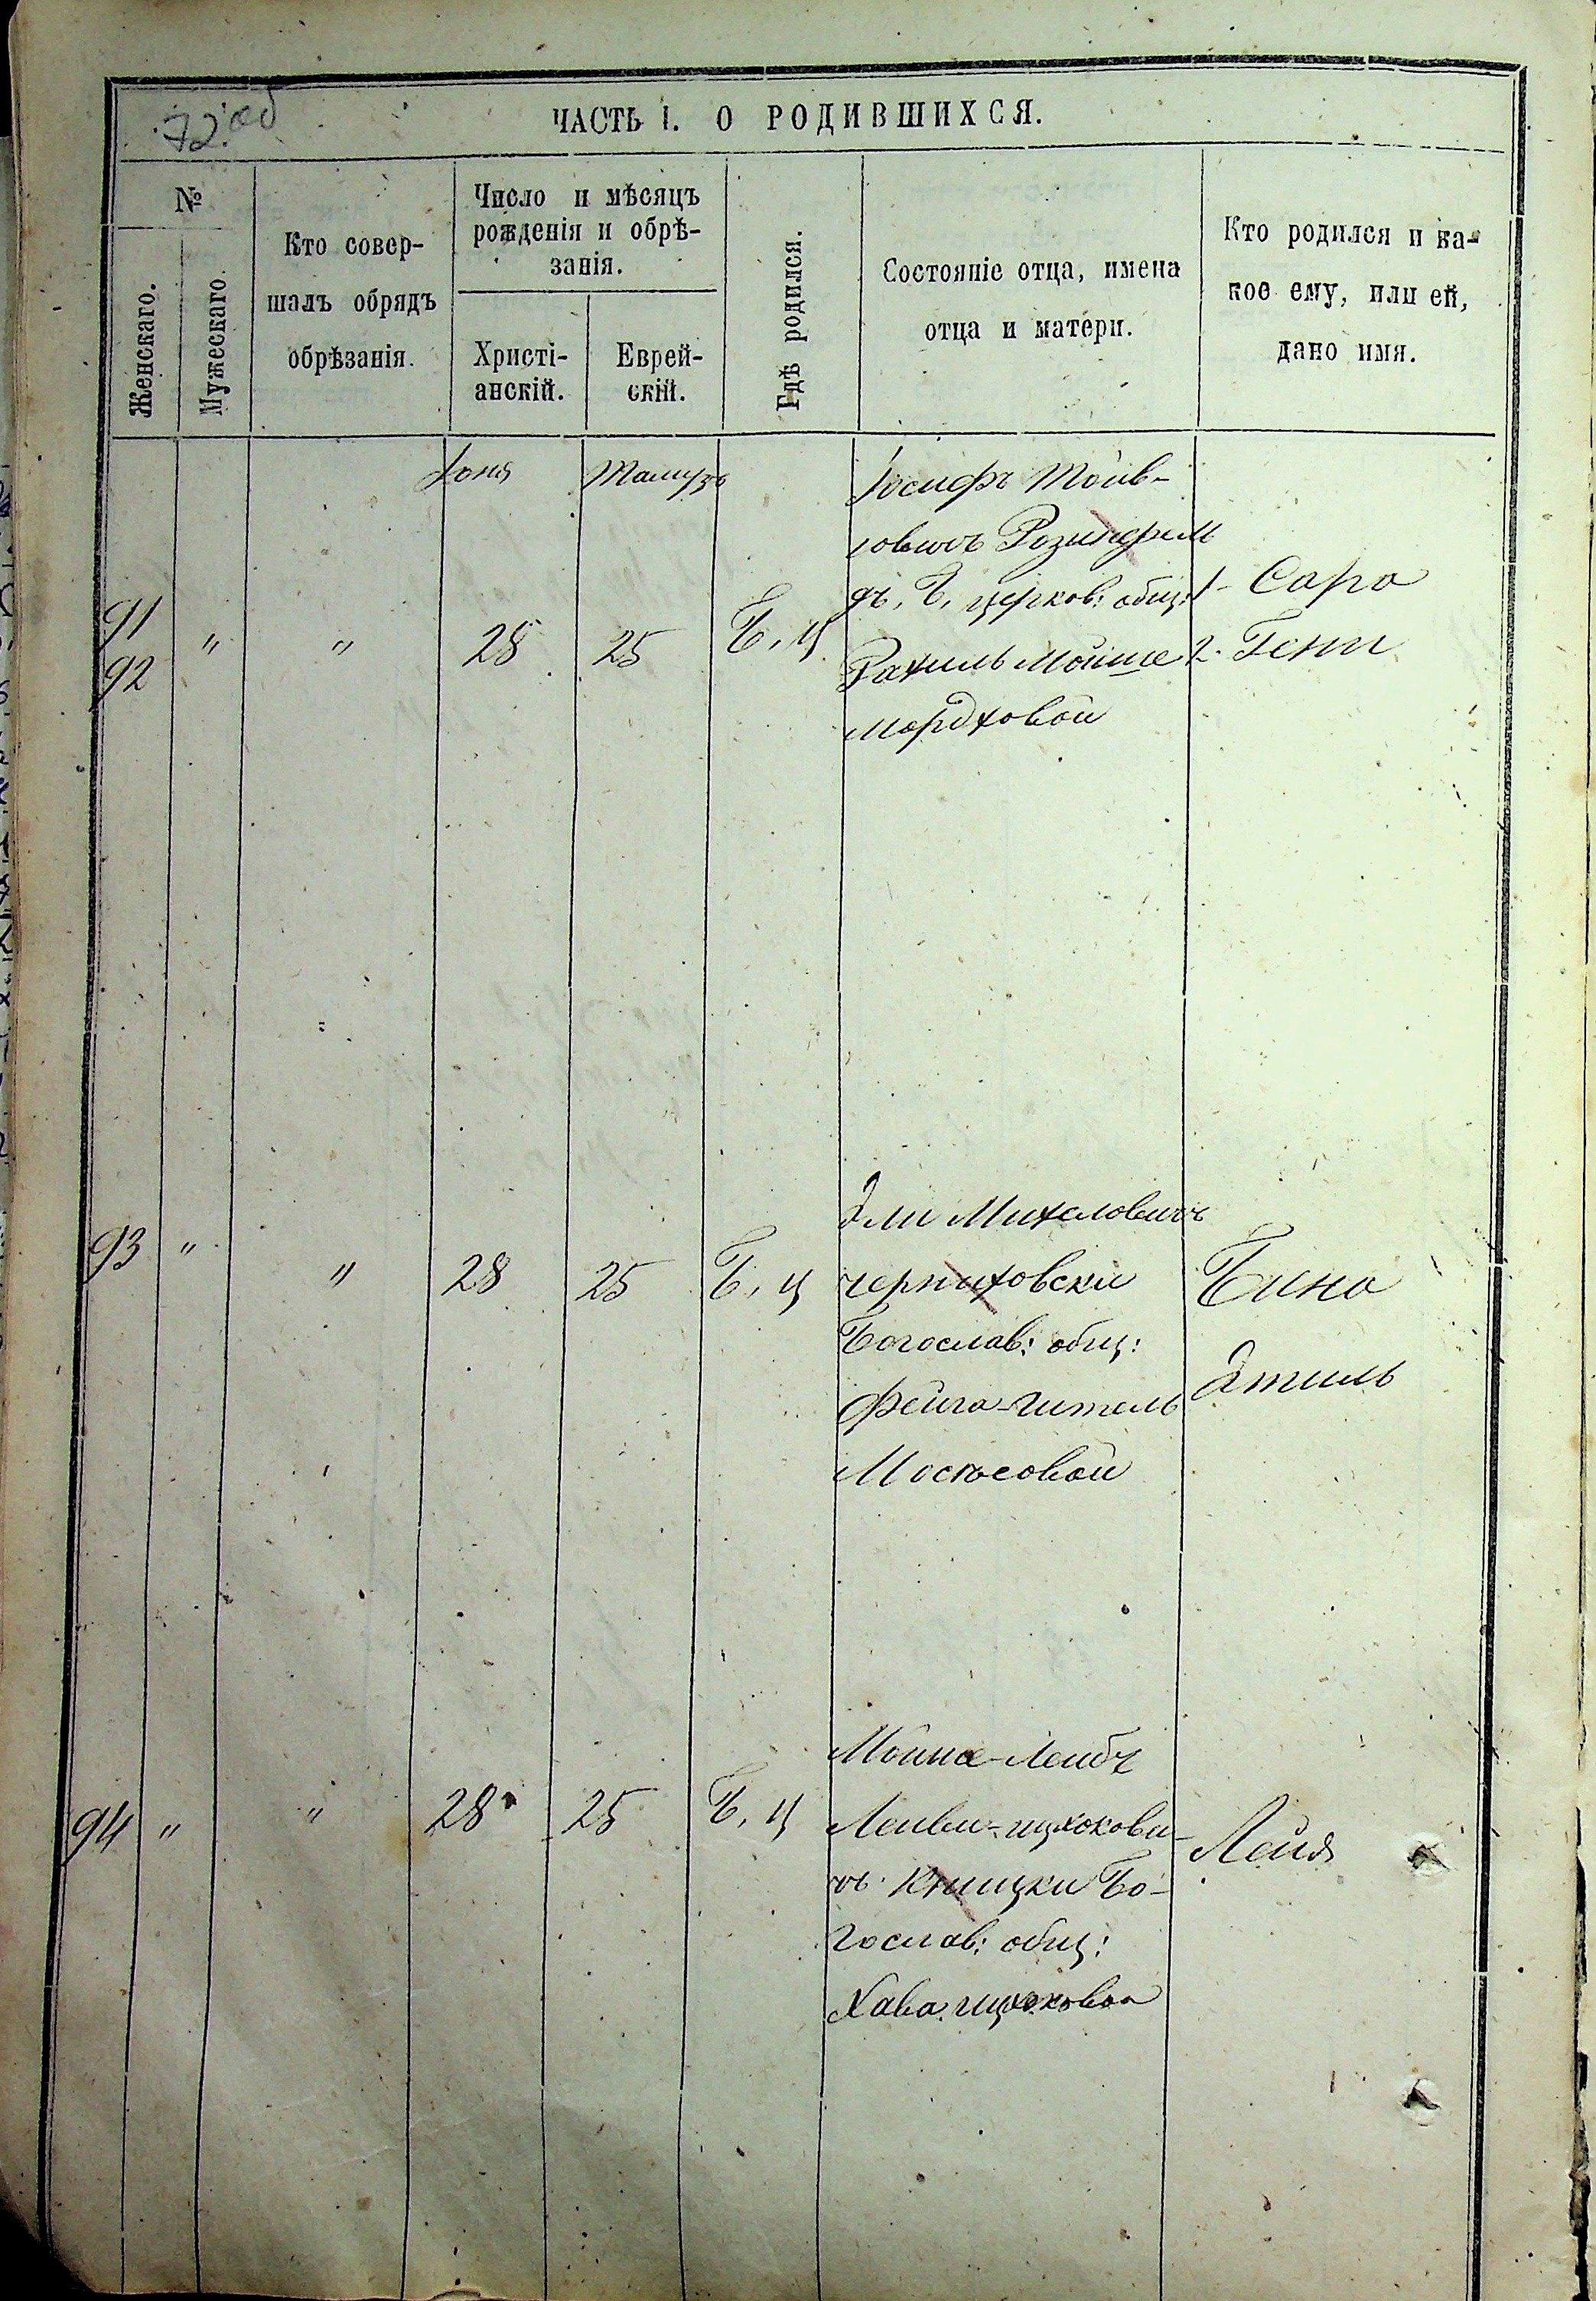 72 об
ЧАСТЬ I. О РОДИВШИХСЯ.
№
Женскаго.
Мужескаго.
Кто совер-
шалъ обрядъ
обрѣзанія.
Число и мѣсяцъ
рожденія и обрѣ-
занія.
Христі-
анскій.
Еврей-
скій.
Гдѣ родился.
Состояніе отца, имена
отца и матери.
Кто родился и ка-
кое ему, или ей,
дано имя.
Юня Тамузъ
91
92
" " 28 25 Б, Ц
Іосифъ Тойв-
іовичъ Розинфель
дъ, Б, церков: общ:
Рахиль Мойше
Мордховой
1- Сара
2. Гени
93 " " 28 25 Б, Ц
Эли Михеловичъ
Черниховски
Богослав: общ:
Фейга-Гитель
Бина
Этиль
94 " " 28 25 Б, Ц
Мойше-Лейбъ
Лейви-Ицхокови-
чъ Кницки Бо-
гослав: общ:
Хава Ицхоковой
Лейя